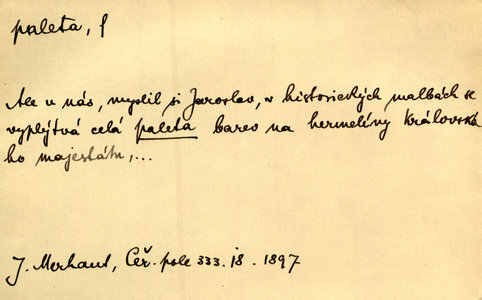 paleta, f
Ale u nás, myslil si Jaroslav, v historických malbách se
vyplýtvá celá paleta barev na hermelíny královské
ho majestátu,...
J. Merhaut, Čeř. pole 333. 18. 1897